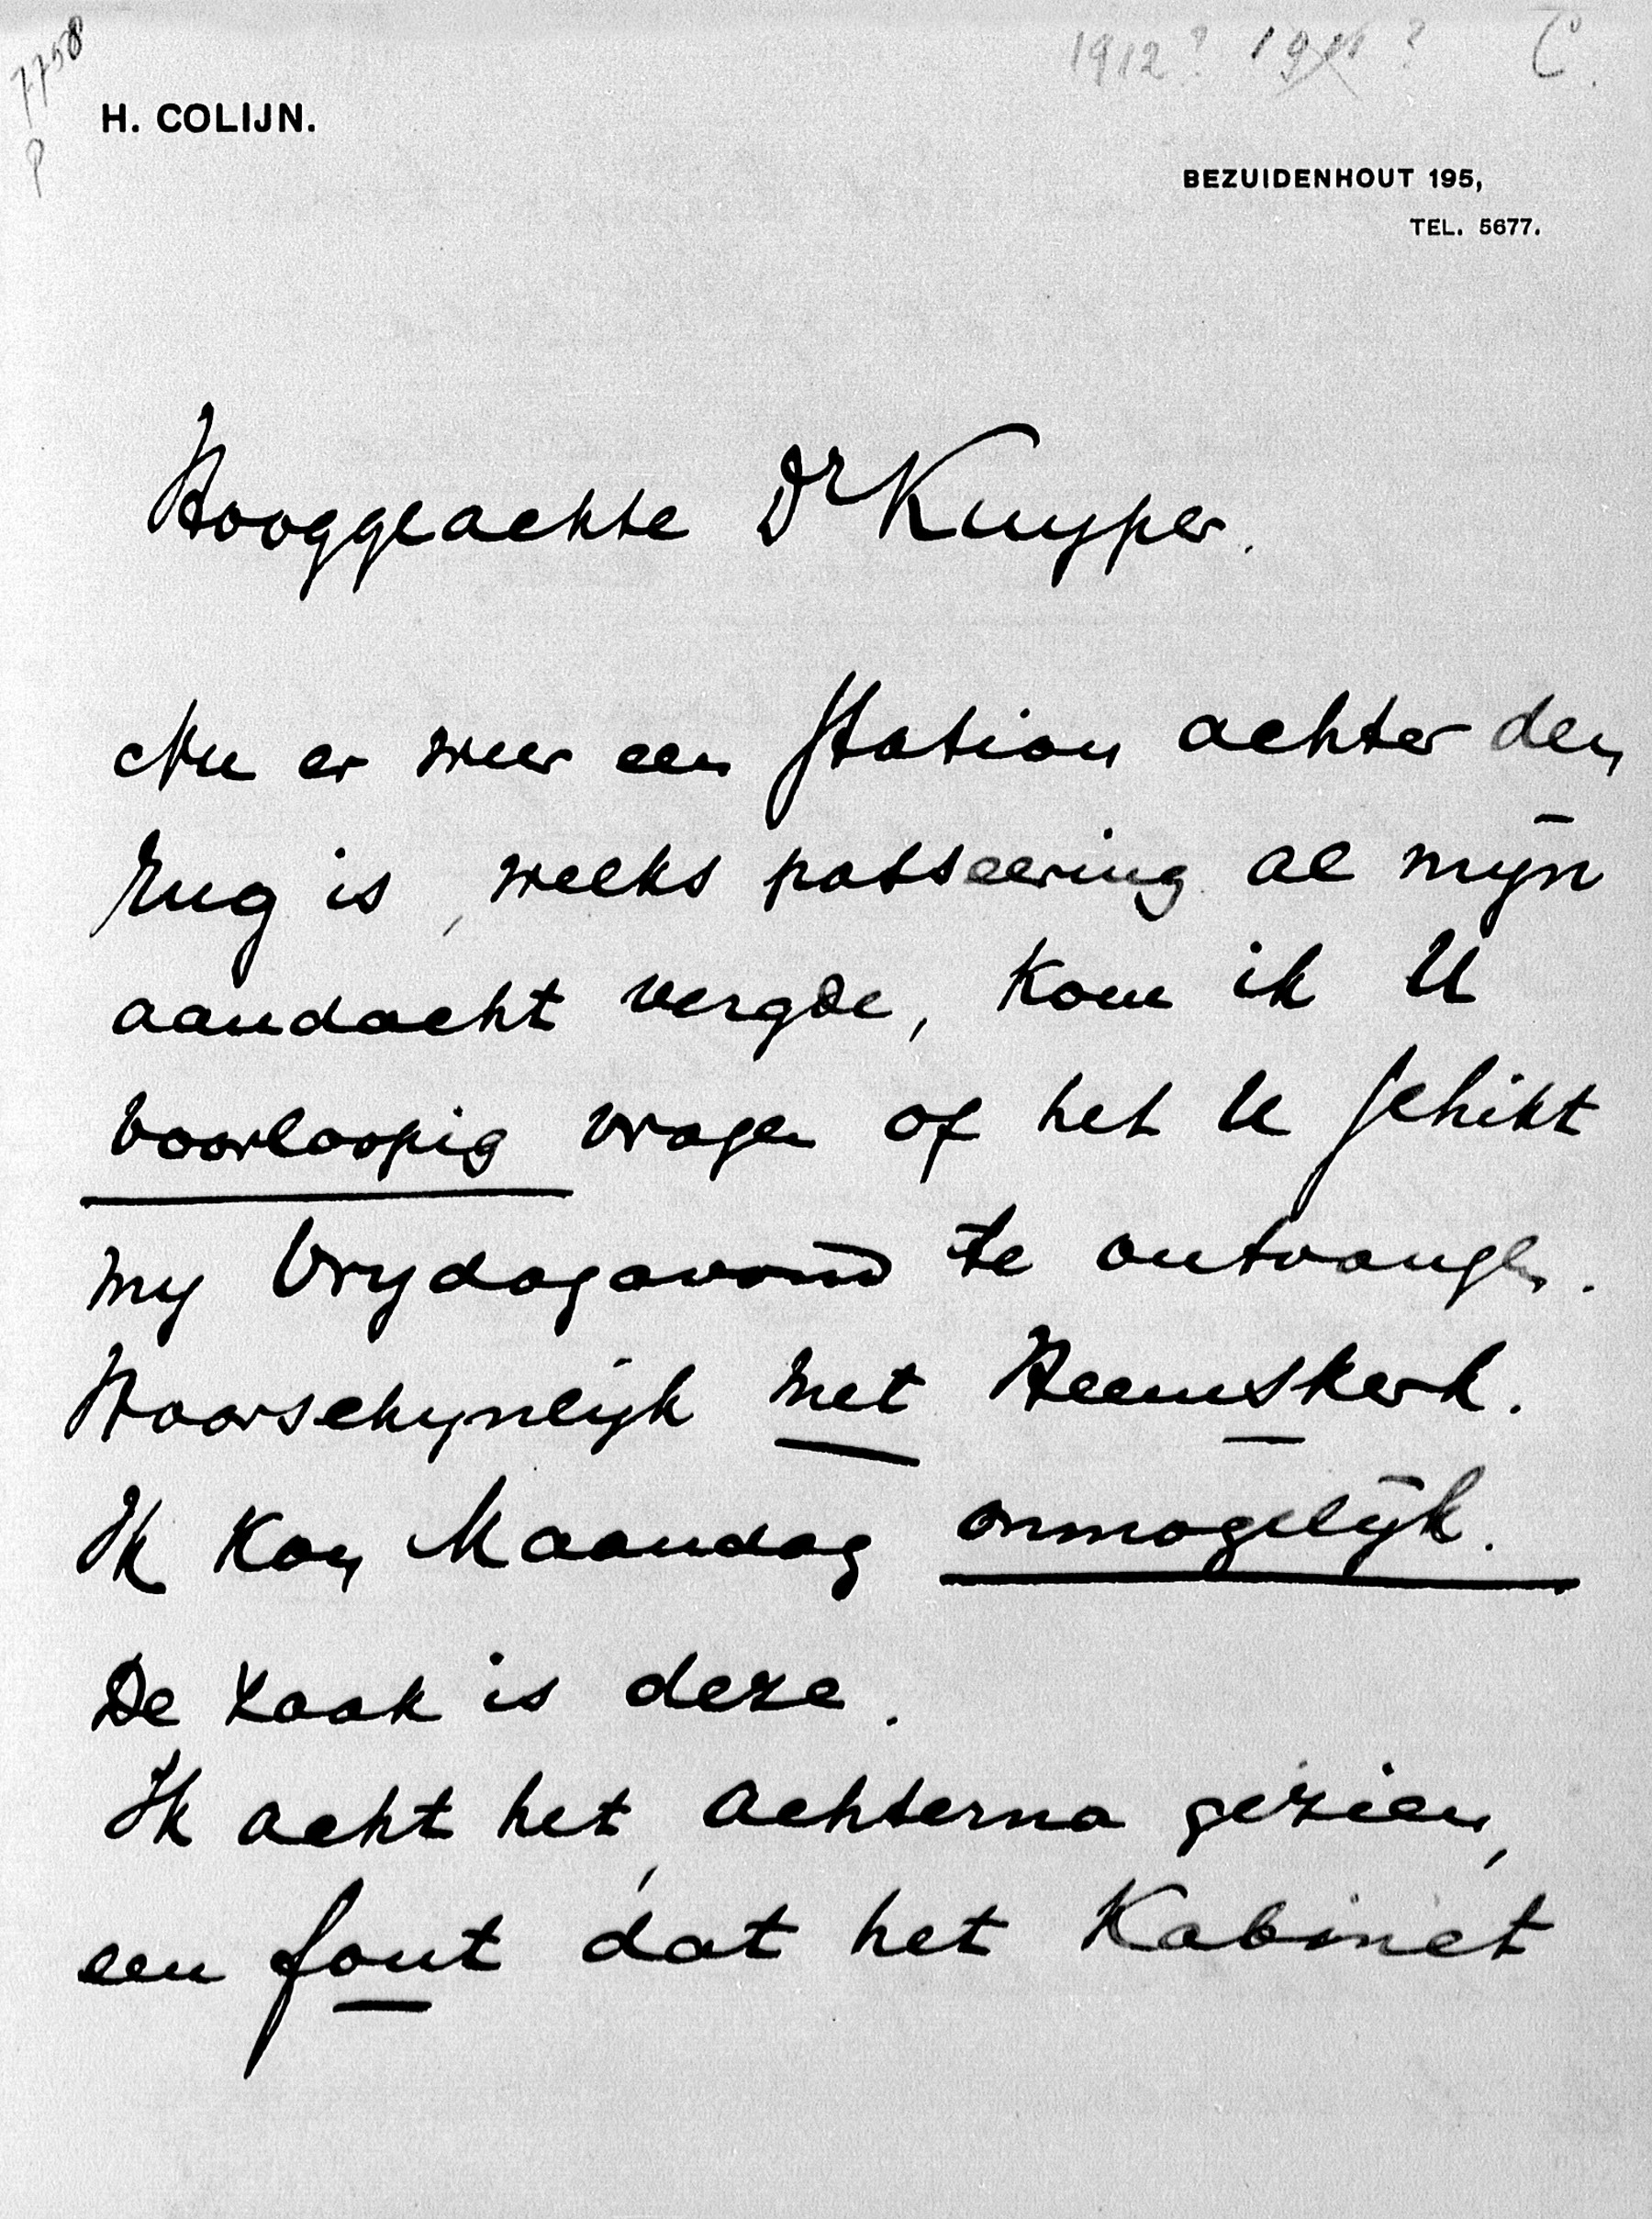 7758
P
1912? 1911? C.
H. COLIJN.
BEZUIDENHOUT 195,
TEL. 5677.
Hooggeachte Dr Kuyper.
Nu er weer een Station achter den
Rug is, welks passeering al mijn
aandacht vergde, kom ik U
voorloopig vragen of het U schikt
my Vrydagavond te ontvangen.
Waarschynlijk met Heemskerk.
Ik kon Maandag onmogelijk.
De zaak is deze.
Ik acht het, achterna gezien,
een fout dat het Kabinet